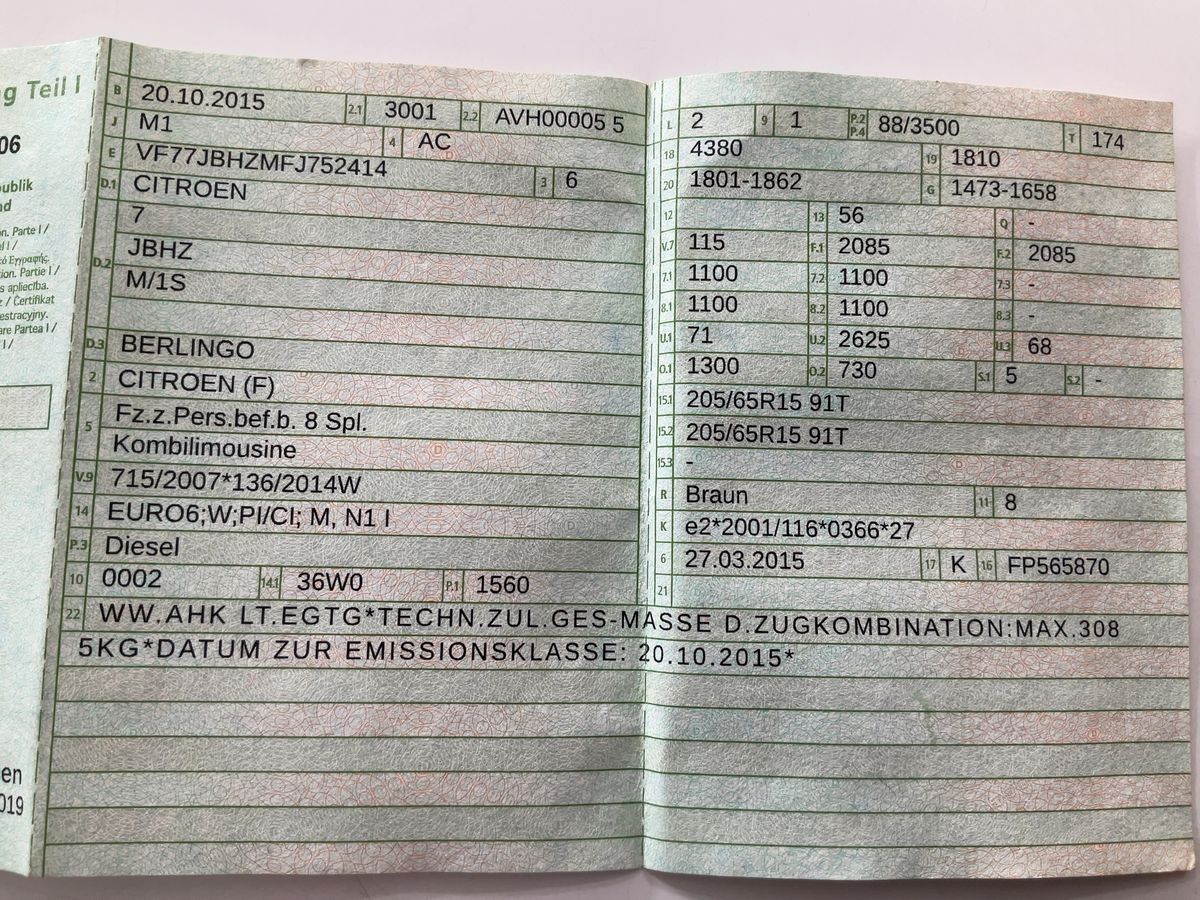 g Teil I
06
publik
nd
on. Parte I /
el I /
κό Εγγραφής.
tion. Partie I /
s apliecība.
z / Ċertifikat
estracyjny.
are Partea I /
I /
en
019
B 20.10.2015 2.1 3001 2.2 AVH00005 5
J M1 4 AC
E VF77JBHZMFJ752414 3 6
D.1 CITROEN
7
D.2 JBHZ
M/1S
D.3 BERLINGO
2 CITROEN (F)
5 Fz.z.Pers.bef.b. 8 Spl.
Kombilimousine
V.9 715/2007*136/2014W
14 EURO6;W;PI/CI; M, N1 I
P.3 Diesel
10 0002 14.1 36W0 P.1 1560
L 2 9 1 P.2 P.4 88/3500 T 174
18 4380 19 1810
20 1801-1862 G 1473-1658
12 13 56 Q -
V.7 115 F.1 2085 F.2 2085
7.1 1100 7.2 1100 7.3 -
8.1 1100 8.2 1100 8.3 -
U.1 71 U.2 2625 U.3 68
O.1 1300 O.2 730 S.1 5 S.2 -
15.1 205/65R15 91T
15.2 205/65R15 91T
15.3 -
R Braun 11 8
K e2*2001/116*0366*27
6 27.03.2015 17 K 16 FP565870
21
22 WW.AHK LT.EGTG*TECHN.ZUL.GES-MASSE D.ZUGKOMBINATION:MAX.308
5KG*DATUM ZUR EMISSIONSKLASSE: 20.10.2015*